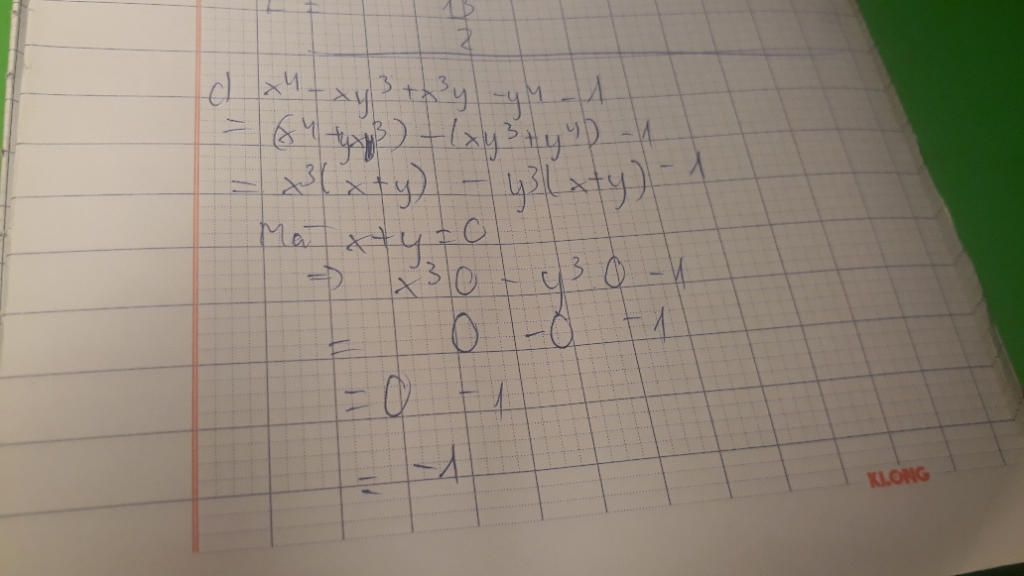 13
2
d x⁴ - xy³ + x³y - y⁴ - 1
= (x⁴ + yx³) - (xy³ + y⁴) - 1
= x³(x+y) - y³(x+y) - 1
Mà x+y = 0
=> x³ 0 - y³ 0 - 1
= 0 - 0 - 1
= 0 - 1
= -1
KLONG